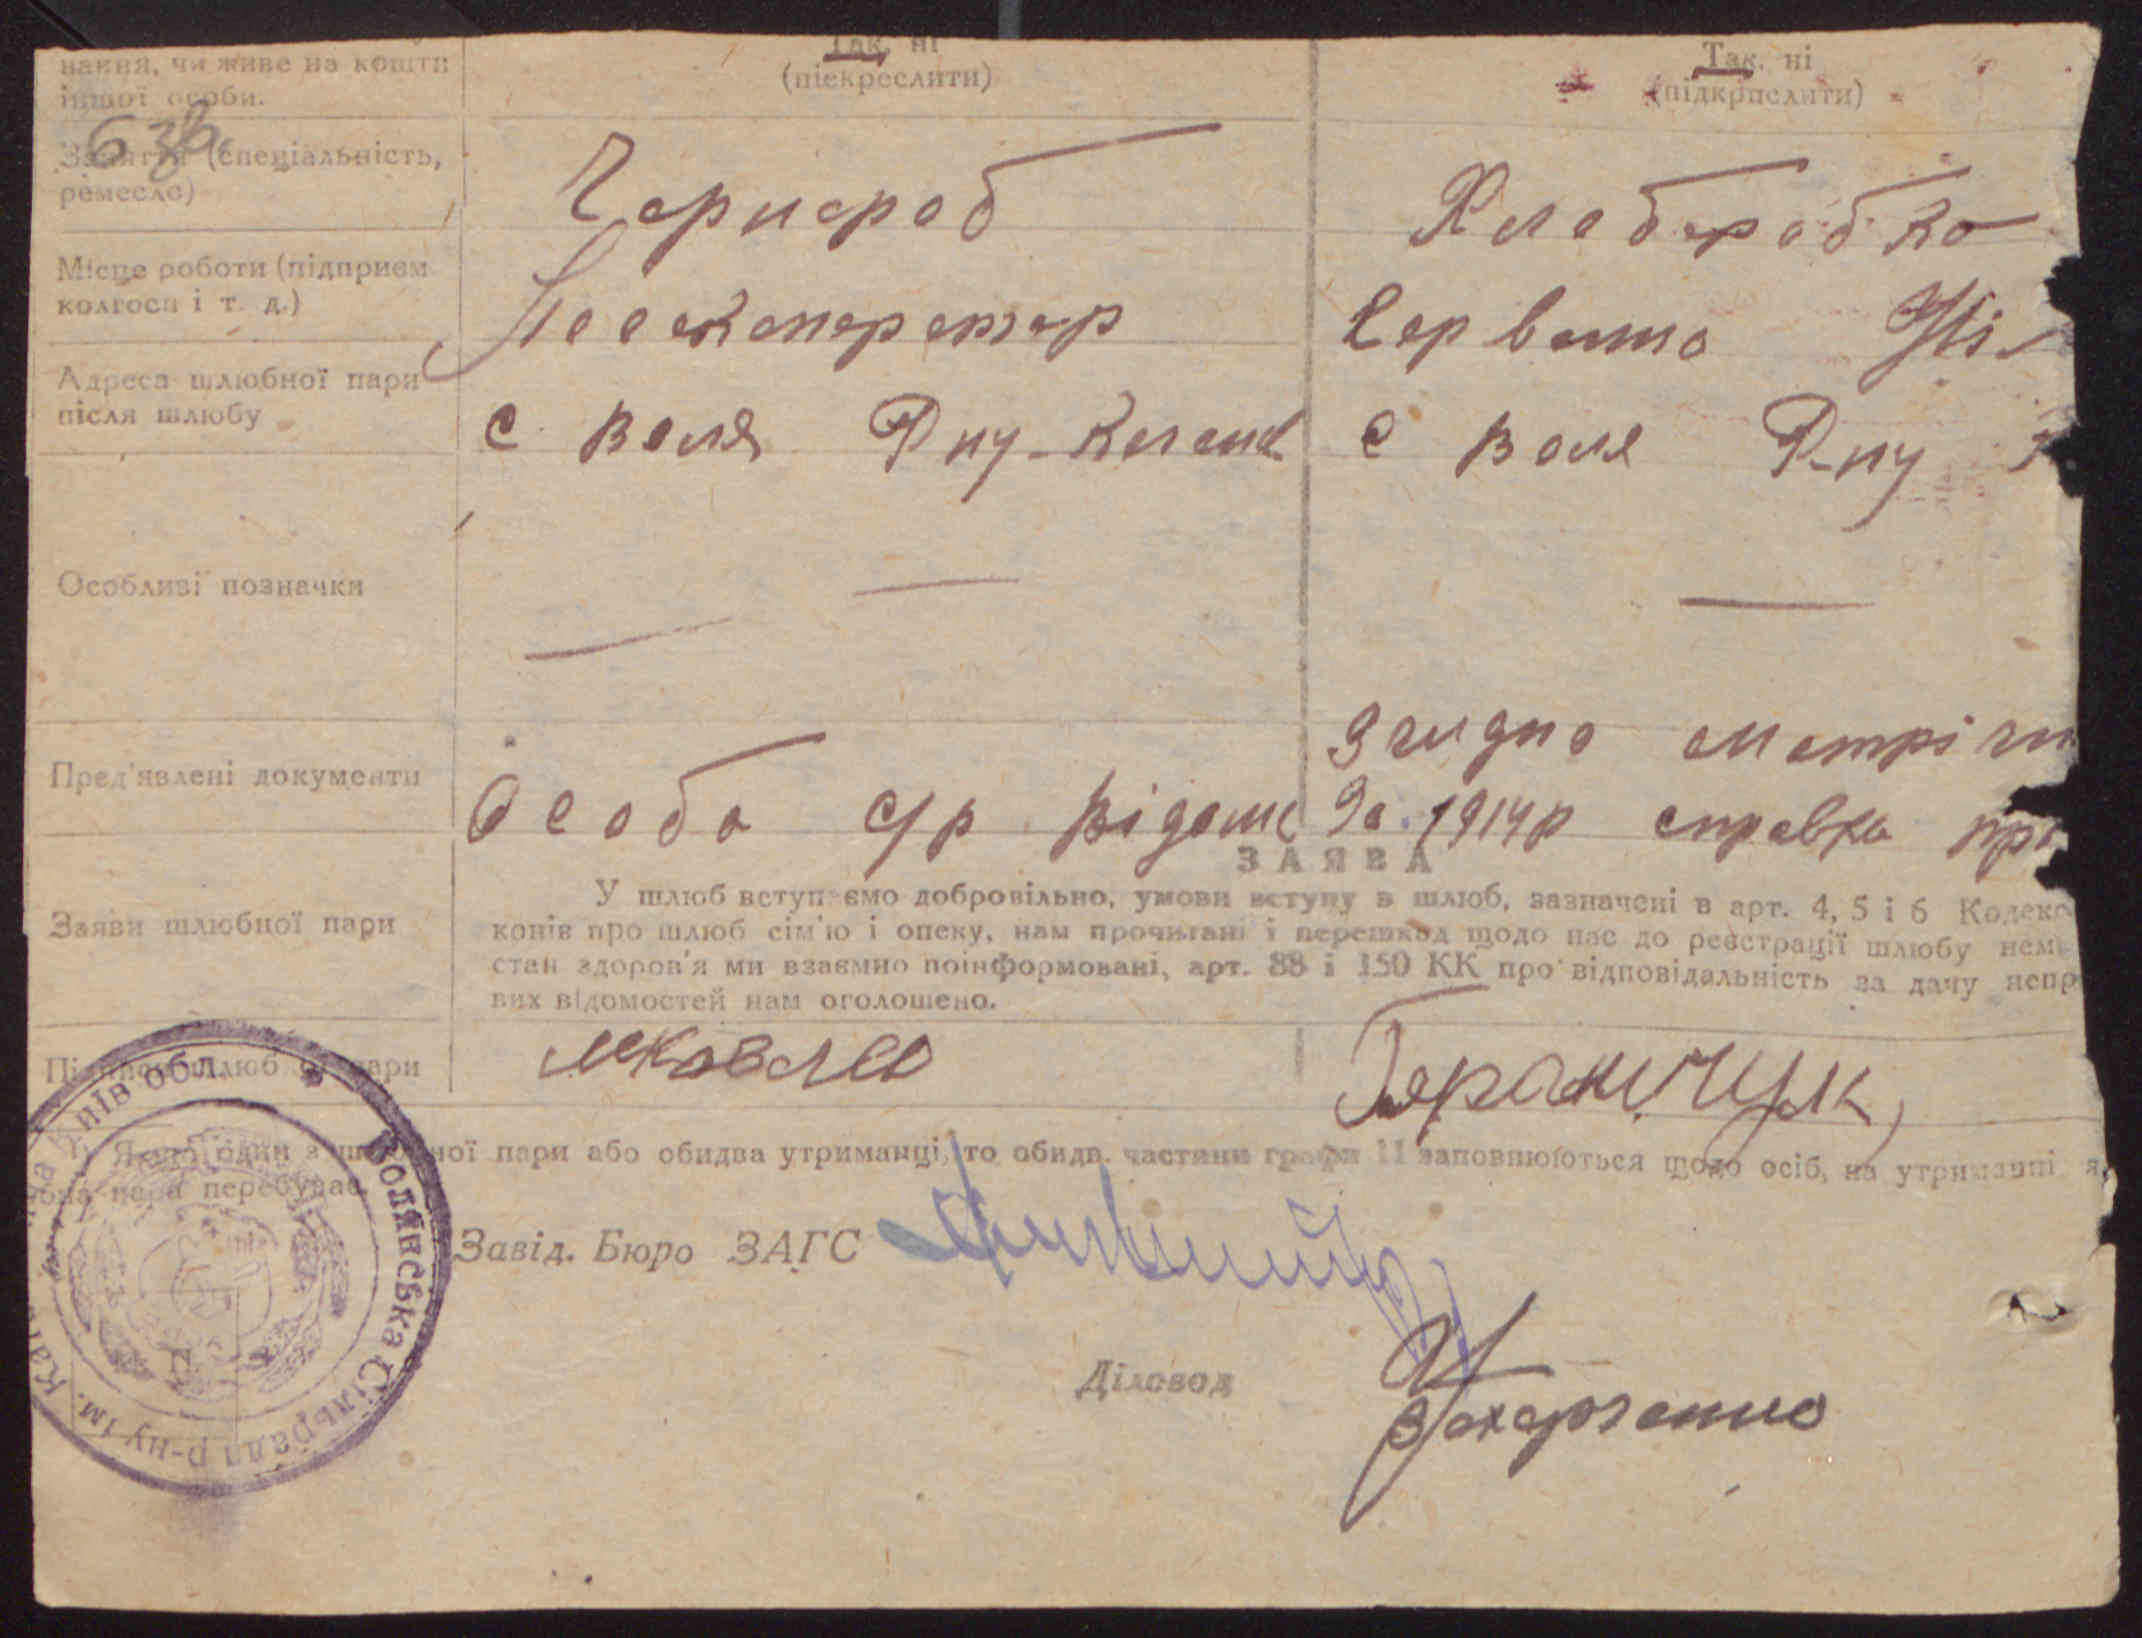 нання, чи живе на кошти
іншої особи.
Так, ні
(піекреслити)
Так, ні
(підкрпслити)
6 зв.
Заняття (спеціальність,
ремесло)
Чорнороб
Хлеборобка
Місце роботи (підприєм
колгосп і т. д.)
Адреса шлюбної пари
після шлюбу
с Воля Р ну
с Воля Р-ну
Особливі позначки
Пред'явлені документи
Особа с/р відома
Згидно метрічн
За 1914р справка
ЗАЯВА
Заяви шлюбної пари
У шлюб вступ ємо добровільно, умови вступу в шлюб, зазначені в арт. 4, 5 і 6 Кодекс
конів про шлюб сім'ю і опеку, нам прочитані і перешкод щодо нас до реєстрації шлюбу нема
стан здоров'я ми взаємно поінформовані, арт. 88 і 150 КК про відповідальність за дачу непр
вих відомостей нам оголошено.
Підписи шлюбної пари
Яковлев
Гаранчук
1) Якщо один з шлюбної пари або обидва утриманці, то обидв. частини графи 11 заповнюються щодо осіб, на утриманні я
бна пара перебуває.
Завід. Бюро ЗАГС
Діловод
Захарченко
Волянська Сільрада р-ну ім. Ка на Київ обл.